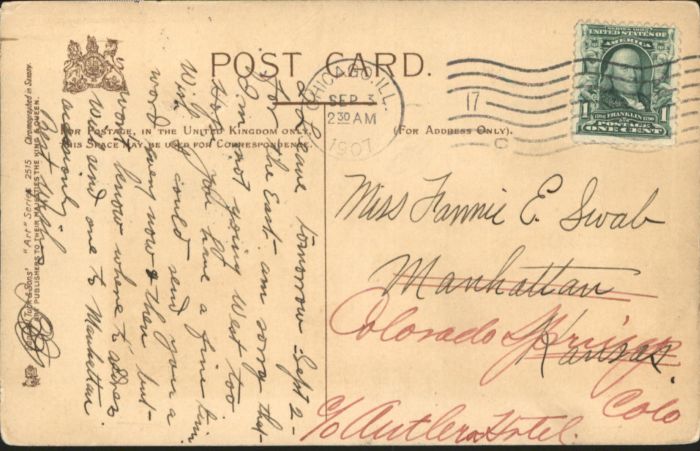 POST CARD.
FOR POSTAGE, IN THE UNITED KINGDOM ONLY,
THIS SPACE MAY BE USED FOR CORRESPONDENCE.
(FOR ADDRESS ONLY).
CHICAGO, ILL.
SEP 3
2 30 AM
1907
17
C
SERIES 1902
UNITED STATES OF
AMERICA
1 FRANKLIN 1
POSTAGE
ONE CENT
Miss Fannie E. Swab
Manhattan
Kansas.
Colorado Springs
Colo
c/o Antlers Hotel.
I leave tomorrow Sept 2-
for the East. am sorry that
I'm not going West too
Hope you have a fine time
Wish I could send you a
word every now & then but
won't know where to address
Will send one to Manhattan
occasionly.
Best Wishes
"Art" Series 2515 Chromographed in Saxony.
PUBLISHERS TO THEIR MAJESTIES THE KING & QUEEN.